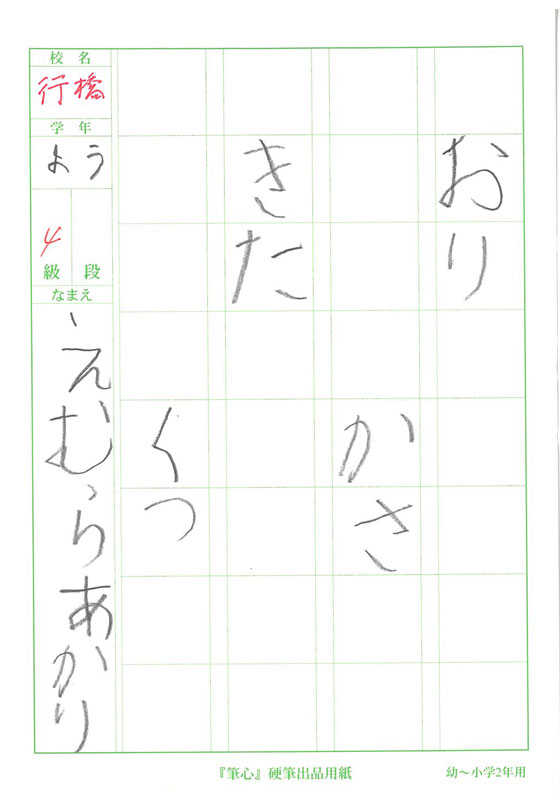 おり
かさ
きた
くつ
校名
行橋
学年
よう
4
級 段
なまえ
えむらあかり
『筆心』硬筆出品用紙
幼～小学2年用